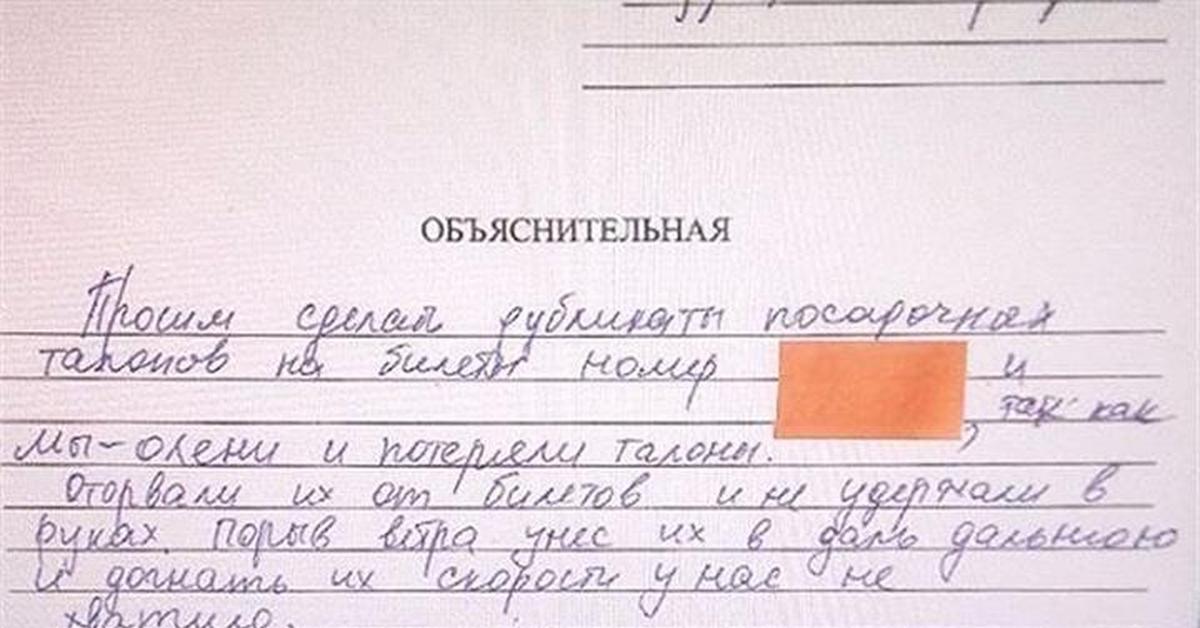 ОБЪЯСНИТЕЛЬНАЯ
Просим сделать дубликаты посадочных
талонов на билеты номер и
так как
мы-олени и потеряли талоны.
Оторвали их от билетов и не удержали в
руках. Порыв ветра унес их в даль дальнюю
и догнать их скорости у нас не
хватило.